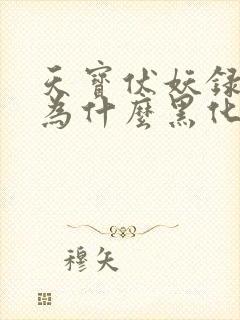 天寶伏妖録
為什麼黑化
穆矢